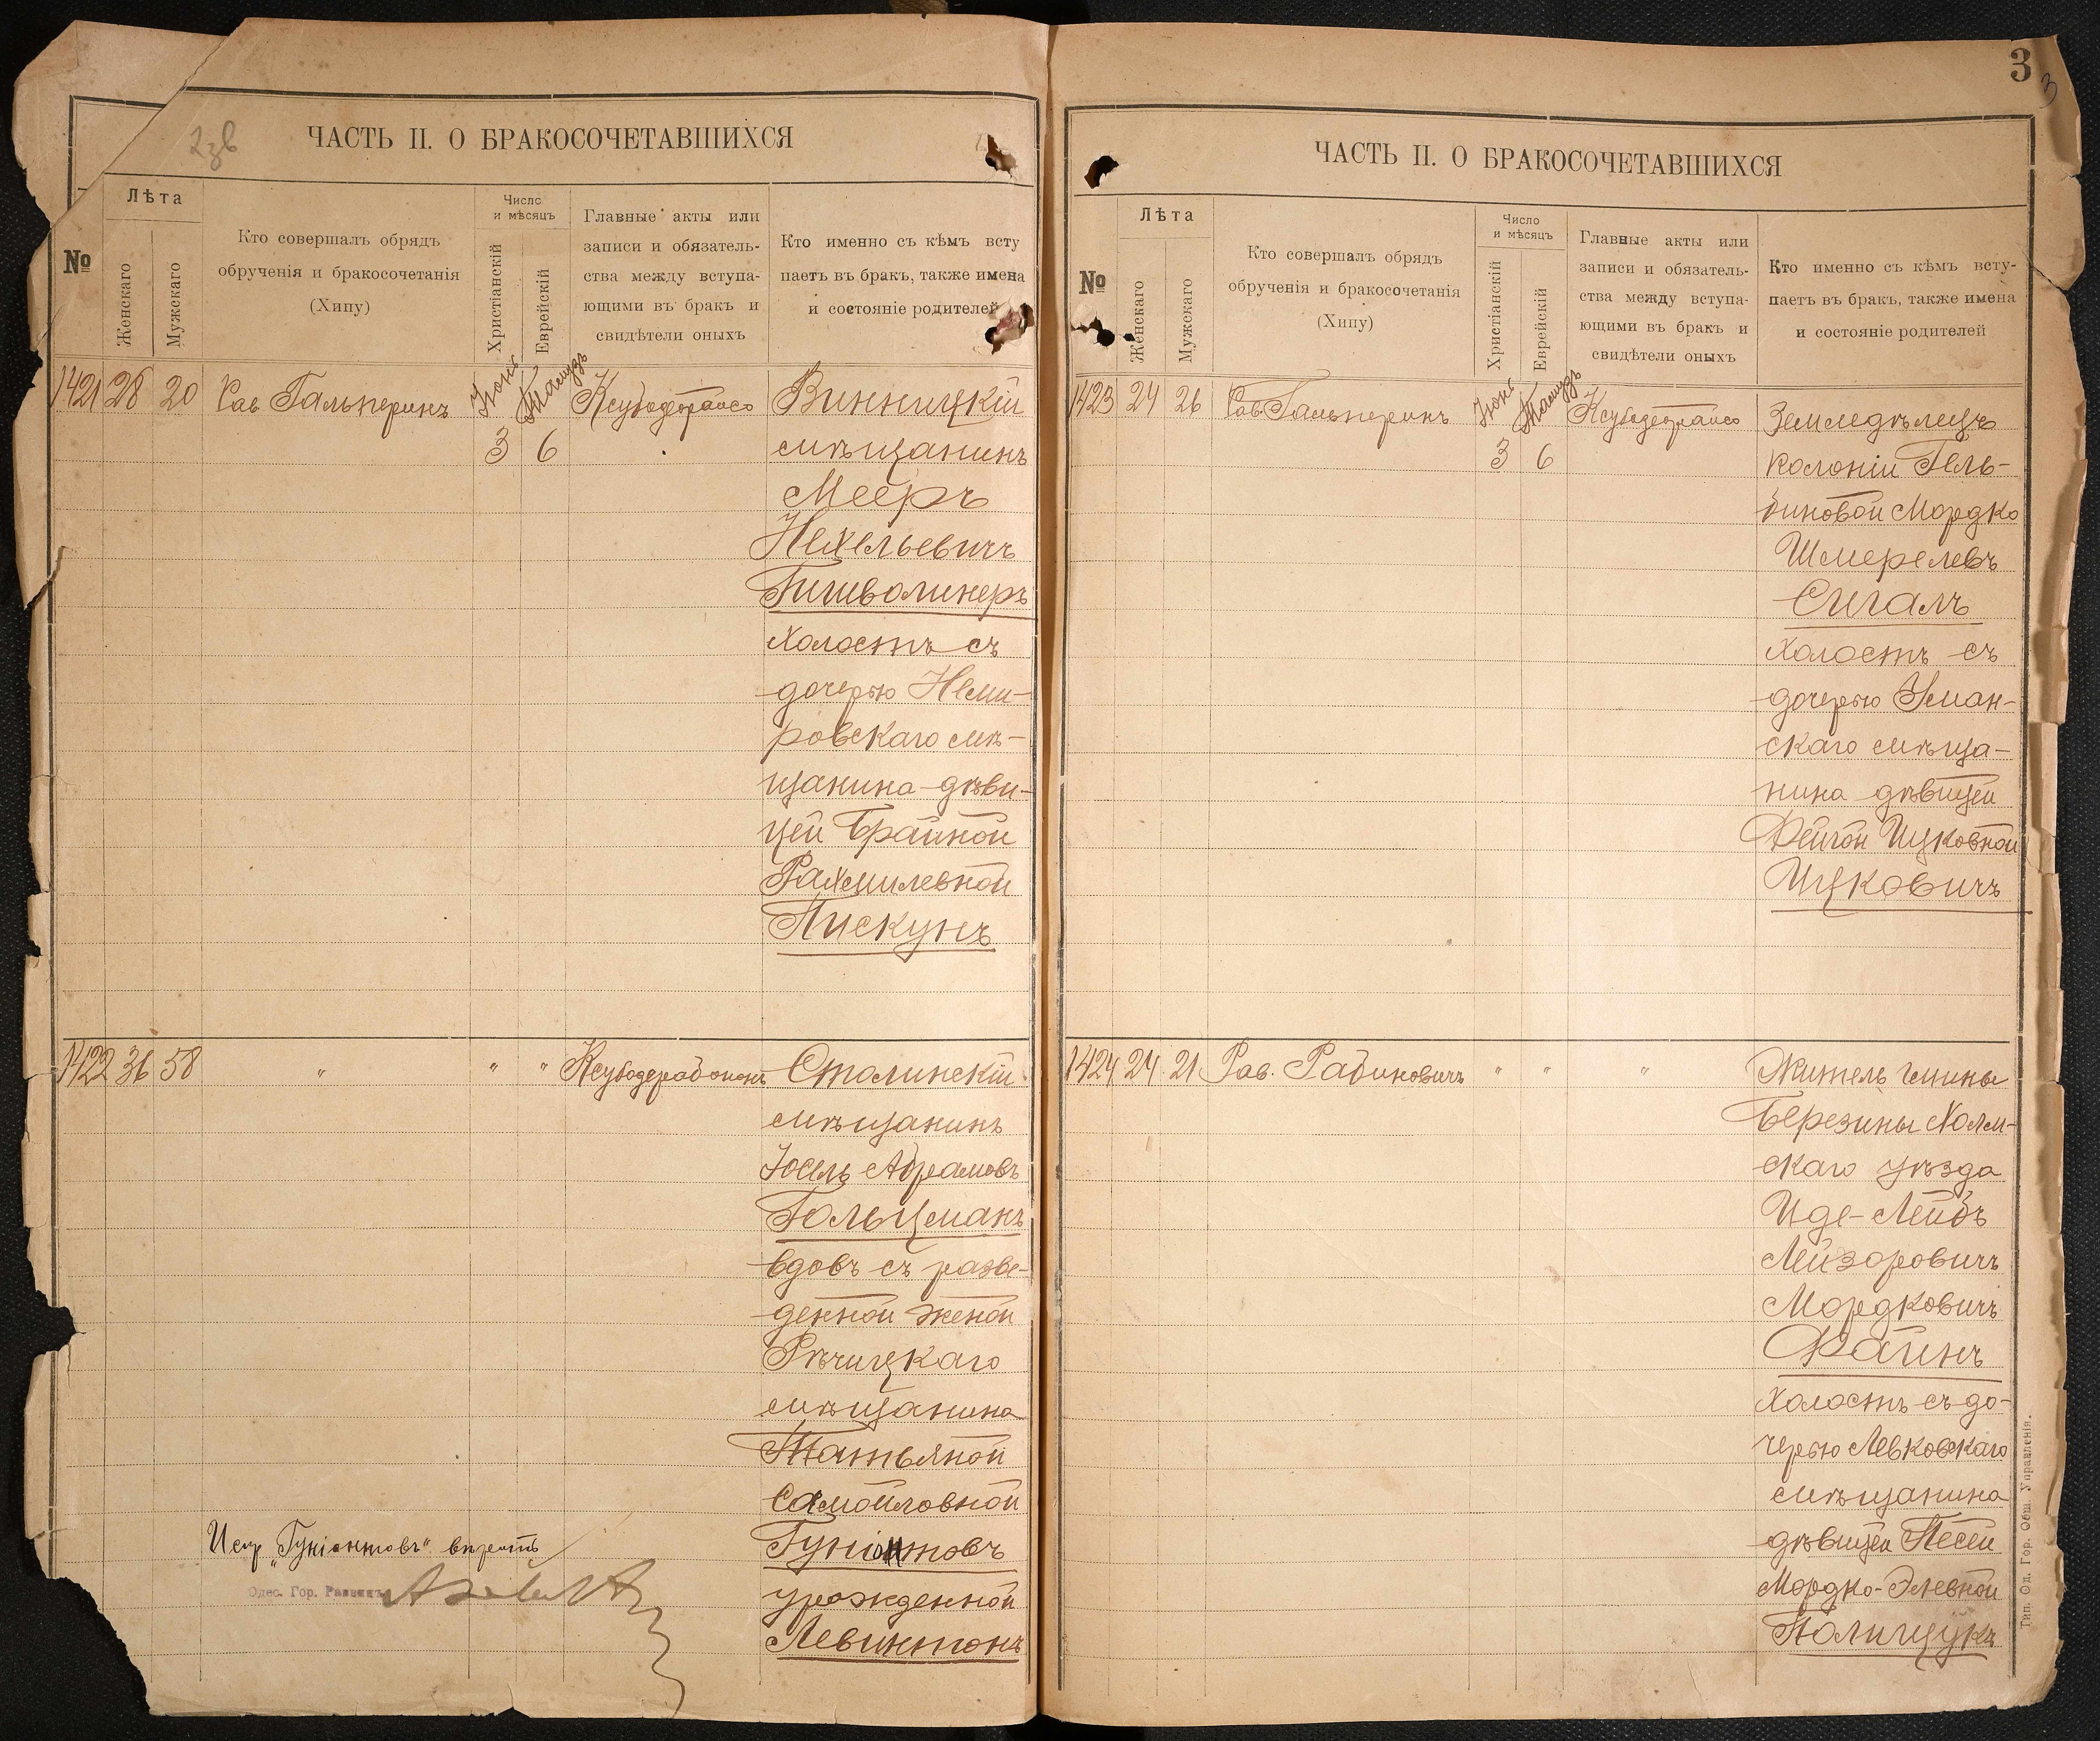 3
3
2зв
ЧАСТЬ II. О БРАКОСОЧЕТАВШИХСЯ
№
Лѣта
Женскаго
Мужскаго
Кто совершалъ обрядъ
обрученія и бракосочетанія
(Хипу)
Число
и мѣсяцъ
Христіанскій
Еврейскій
Главные акты или
записи и обязатель-
ства между вступа-
ющими въ бракъ и
свидѣтели оныхъ
Кто именно съ кѣмъ всту
паетъ въ бракъ, также имена
и состояніе родителей
1421 28 20 Рав Гальперинъ Іюнь 3 Тамузъ 6 Ксубодеорайсо Винницкій
мѣщанинъ
Мееръ
Нехельевичъ
Гишволинеръ
холостъ съ
дочерью Неми-
ровскаго мѣ-
щанина дѣви-
цей Брайной
Рахмилевной
Пискунъ
1422 36 58 " " " Ксубодерабонон Столинскій
мѣщанинъ
Іосель Абрамовъ
Гольцманъ
вдовъ съ разве-
денной женой
Рѣчицкаго
мѣщанина
Татьяной
Самойловной
Гуніонтовъ
урожденной
Левинтонъ
Испр. „Гуніонтовъ" вѣрить
Одес. Гор. Раввинъ
ЧАСТЬ II. О БРАКОСОЧЕТАВШИХСЯ
№
Лѣта
Женскаго
Мужскаго
Кто совершалъ обрядъ
обрученія и бракосочетанія
(Хипу)
Число
и мѣсяцъ
Христіанскій
Еврейскій
Главные акты или
записи и обязатель-
ства между вступа-
ющими въ бракъ и
свидѣтели оныхъ
Кто именно съ кѣмъ всту-
паетъ въ бракъ, также имена
и состояніе родителей
1423 24 26 Рав. Гальперинъ Іюнь 3 Тамузъ 6 Ксубодеорайсо Земледѣлецъ
колоніи Гель-
биновой Мордко
Шмерелевъ
Сигалъ
холостъ съ
дочерью Уман-
скаго мѣща-
нина дѣвицей
Фейгой Ицковной
Ицковичъ
1424 24 21 Рав. Рабиновичъ " " " Житель гмины
Березины Холм-
скаго уѣзда
Иде-Лейбъ
Лейзоровичъ
Мордковичъ
Файнъ
холостъ съ до-
черью Левковскаго
мѣщанина
дѣвицей Песей
Мордко-Элевной
Полищукъ
Тип. Од. Гор. Общ. Управленія.